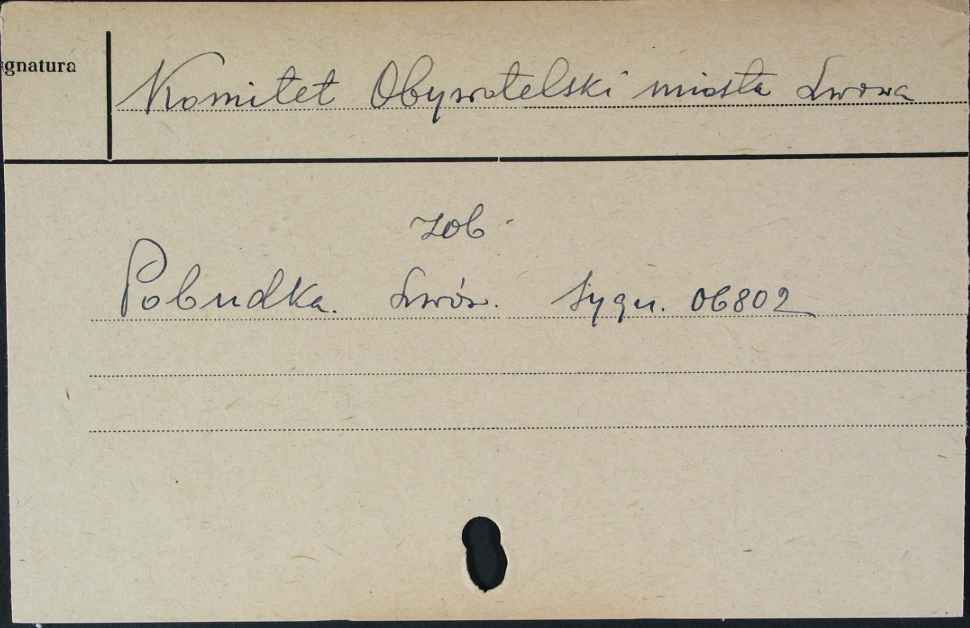 gnatura
Komitet Obywatelski miasta Lwowa
zob.
Pobudka. Lwów. Sygn. 06802